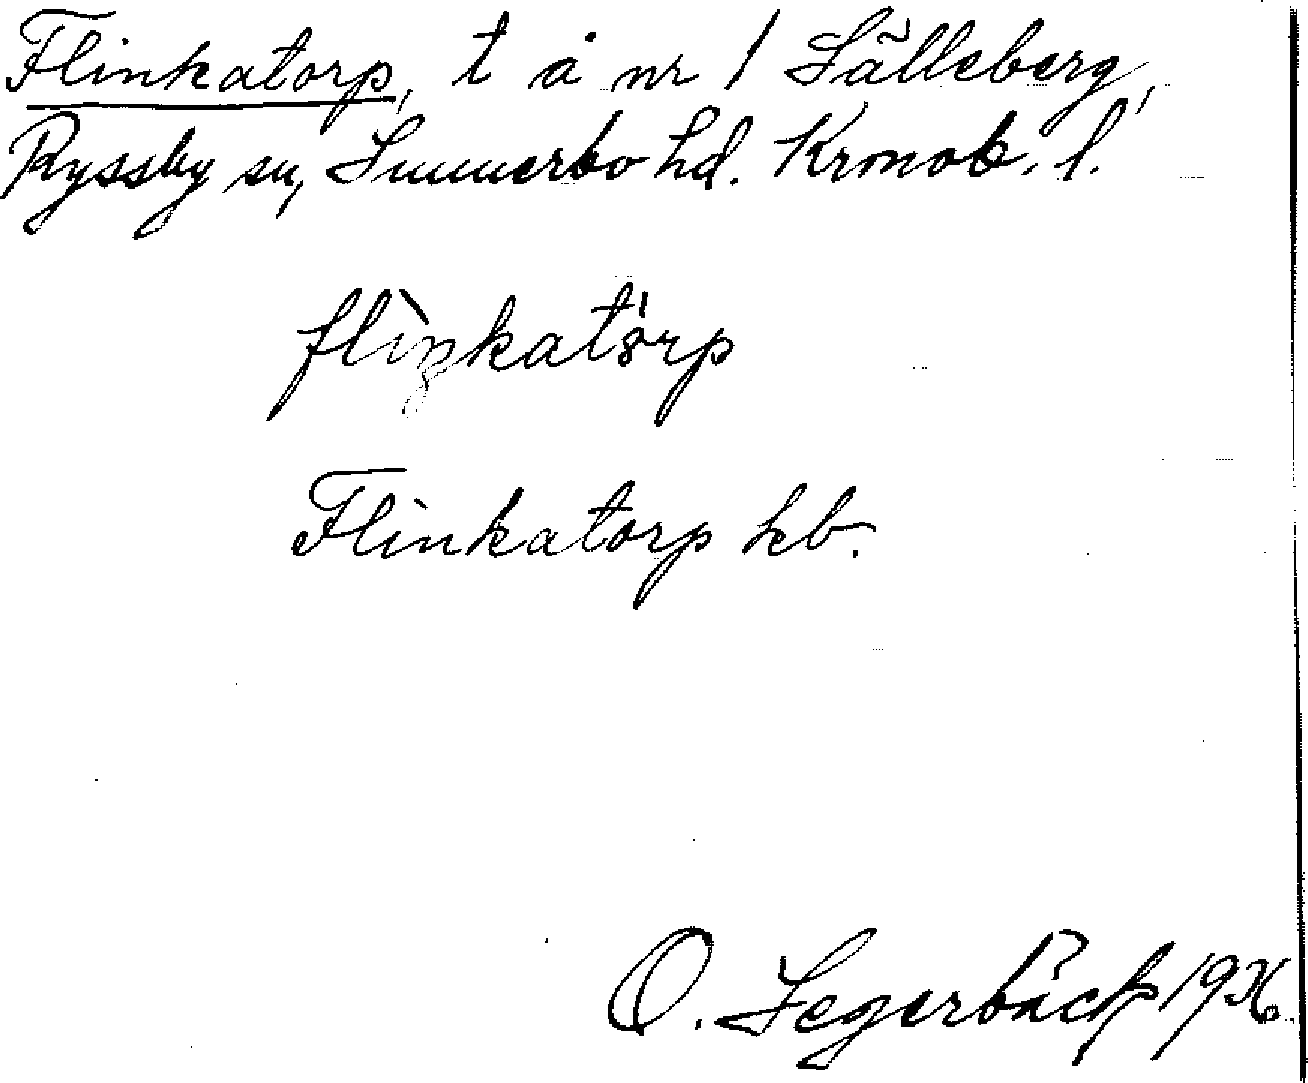 Flinkatorp, t å nr 1 Sälleberg,
Ryssby sn, Sunnerbo hd. Kronob. l.
flìŋkatórp
Flinkatorp kb.
O. Segerbäck 1936